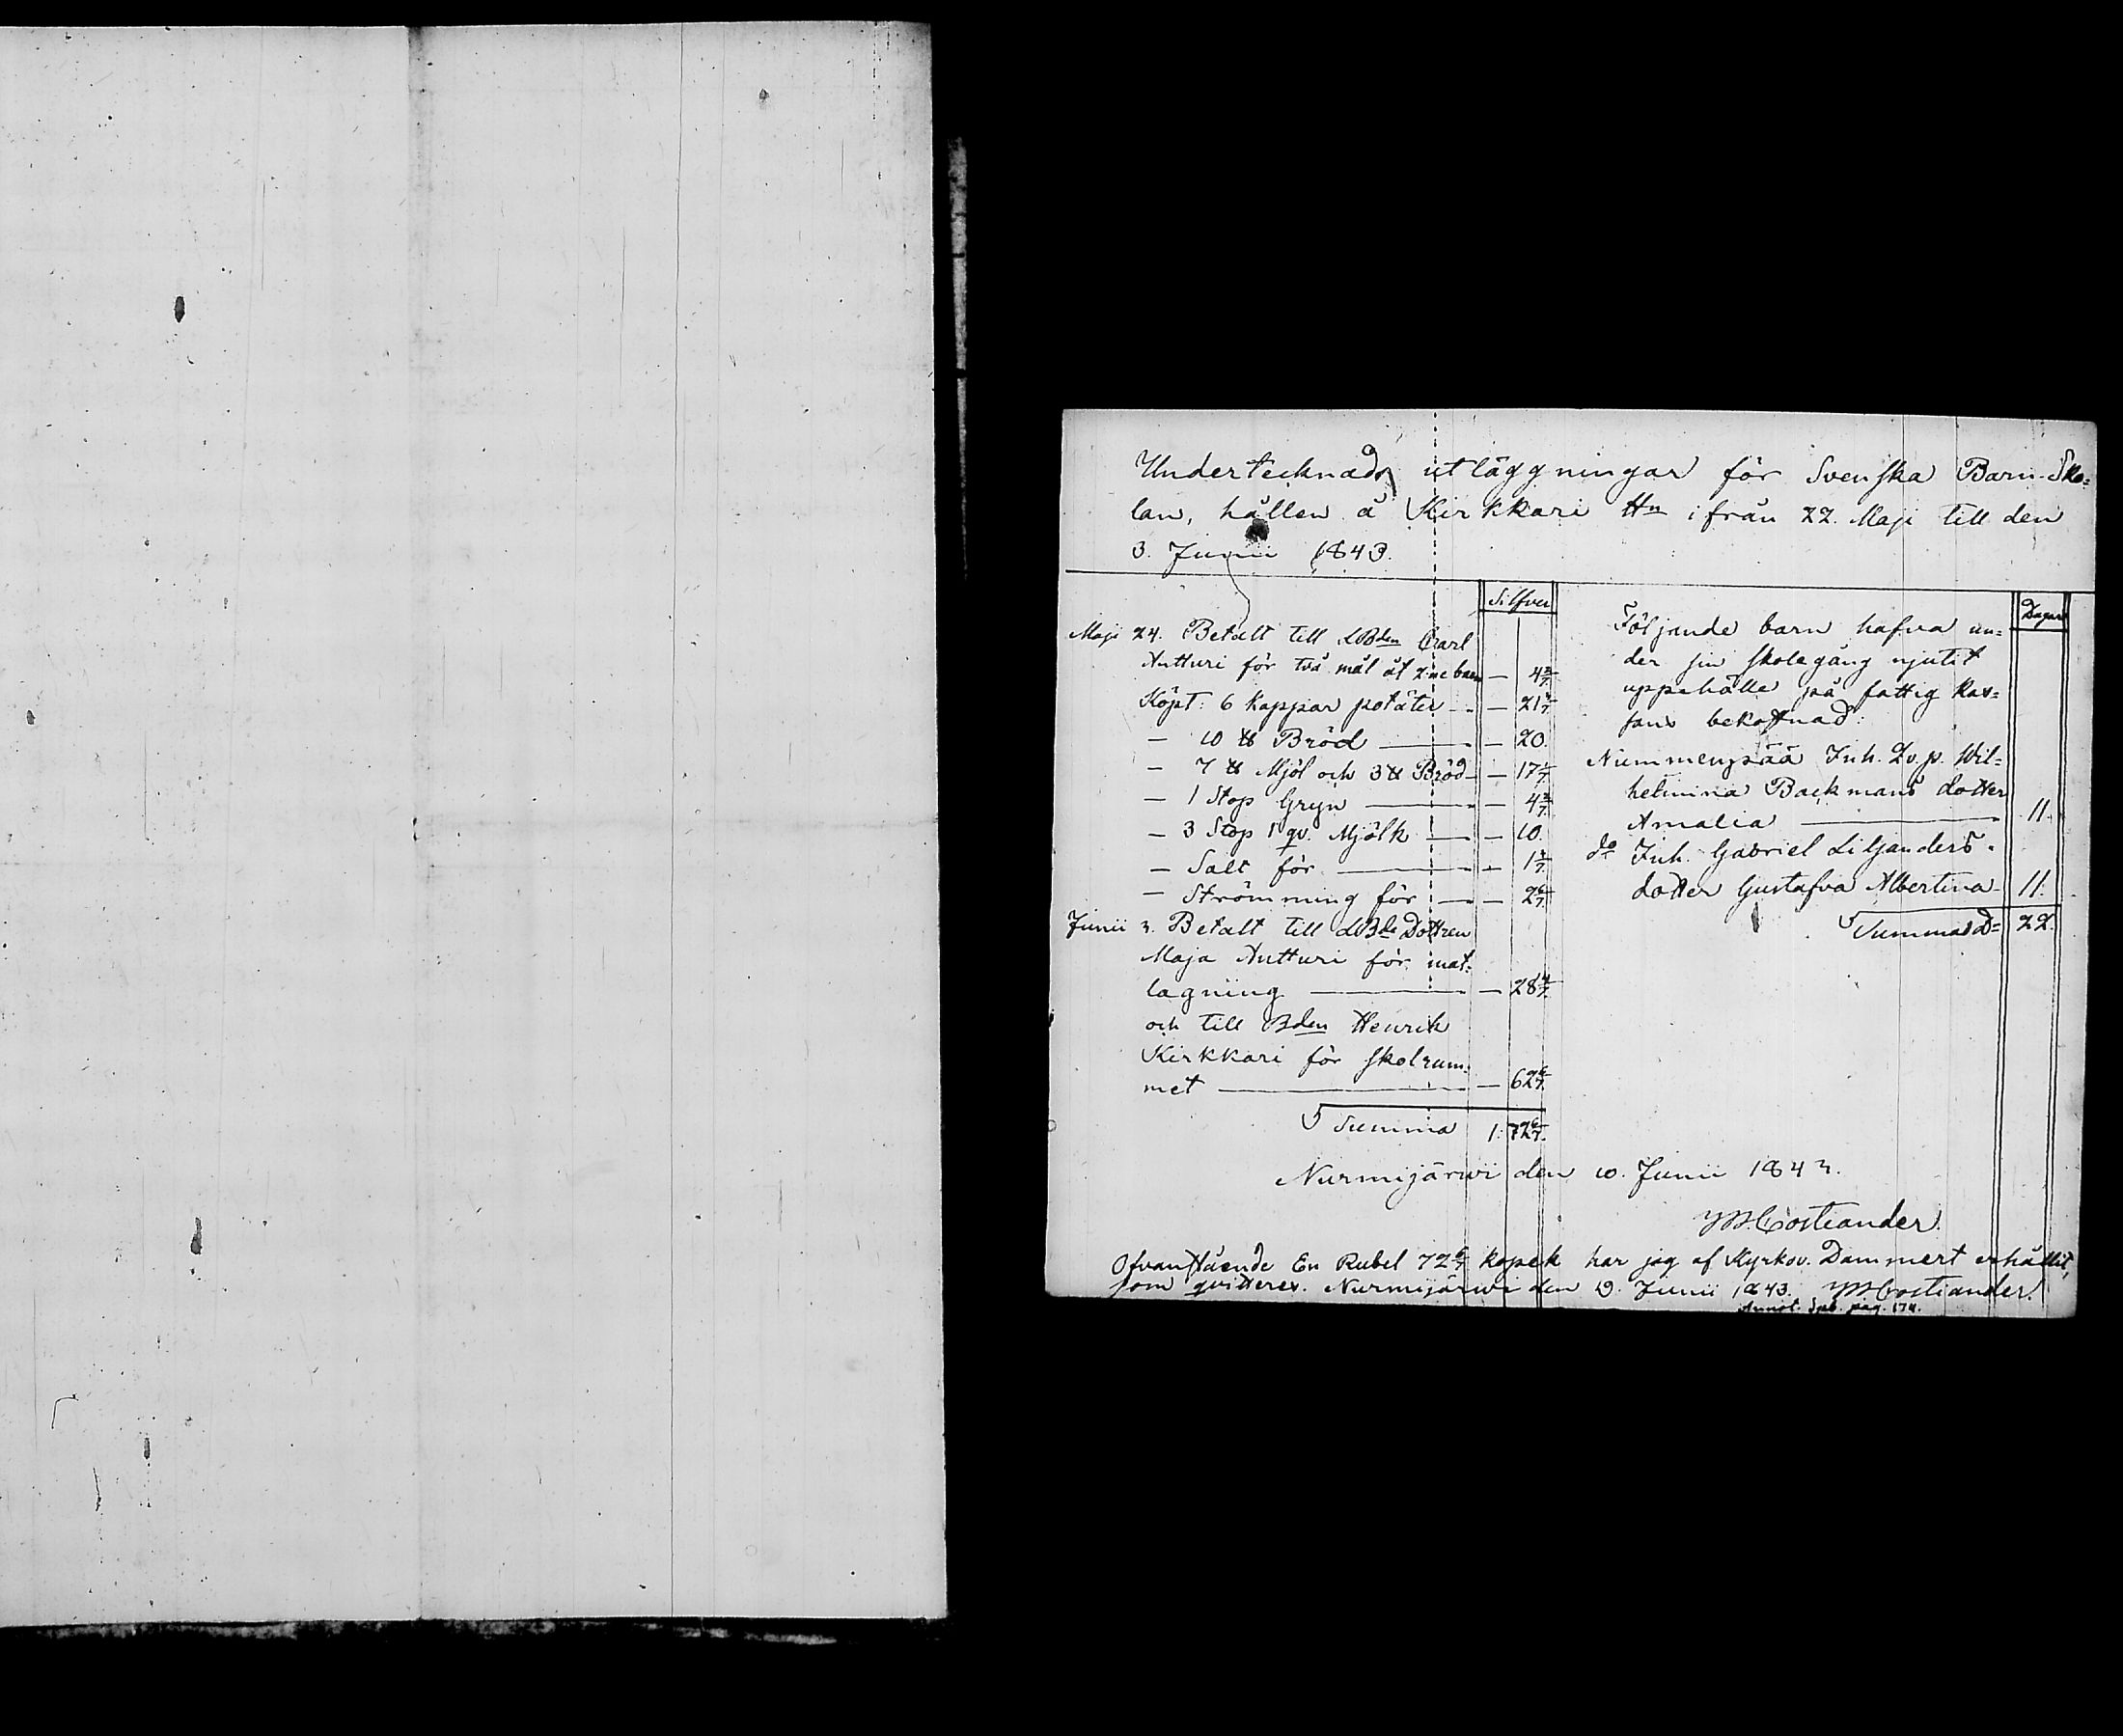 Undertecknads utläggningar för Svenska Barn-Sko=
lan, hållen å Kirkkari Hn ifrån 22. Maji till den
3. Junii 1843.
Silfver
Maji 24. Betalt till dBden Carl
Antturi för två mål åt 2ne barn — 4 2/7
Köpt: 6 kappar potäter — — 21 3/7
— 10 ℔ Bröd — — 20.
— 7 ℔ Mjöl och 3 ℔ Bröd — — 17 1/7
— 1 Stop Gryn — — 4 2/7
— 3 Stop 1 qv. Mjölk — — 10.
— Salt för — — 1 3/7
— Strömming för — — 2 6/7
Junii 3. Betalt till dBde Dottren
Maja Antturi för mat=
lagning — — 28 4/7
och till Bden Henrik
Kirkkari för skolrum=
met — — 62 6/7
Summa 1: 72 6/7
Dagar
Följande barn hafva un=
der sin skolegång njutit
uppehälle på fattig kas=
sans bekostnad:
Nummenpää Inh. Qvp. Wil=
helmina Backmans dotter
Amalia — 11.
do Inh. Gabriel Liljanders
dotter Gustafva Albertina — 11.
Summa d= 22.
Nurmijärwi den 10. Junii 1843.
Costiander.
Ofvanstående En Rubel 72 6/7 kopek har jag af Kyrkov. Dammert erhållit,
som qvitteres. Nurmijärwi den 19. Junii 1843. Costiander.
pag. 174.